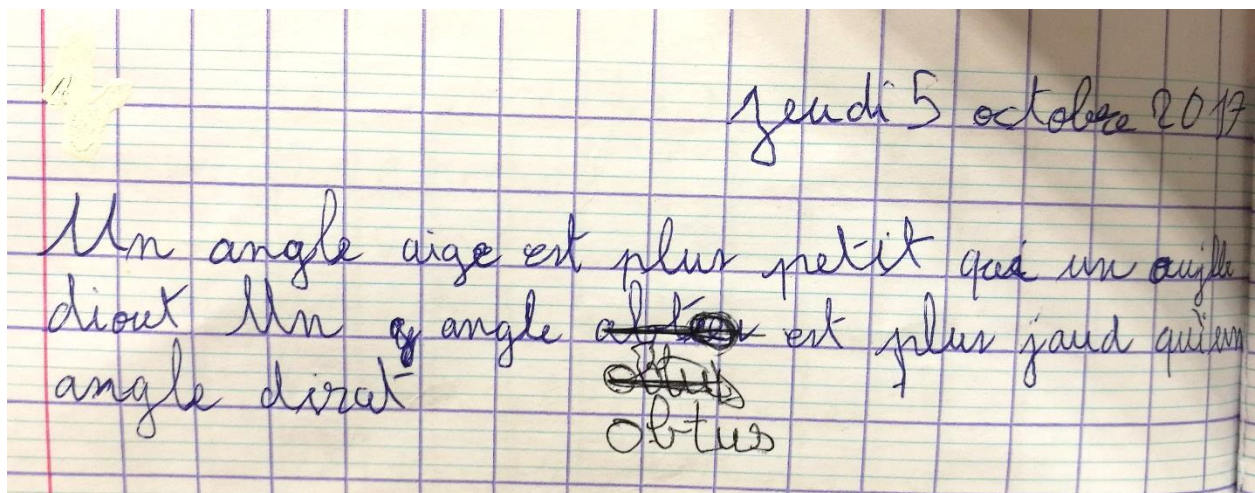 Jeudi 5 octobre 2017
Un angle aige est plus petit que un
diout Un angle est plus jaud qu'un
angle dirat
obtus